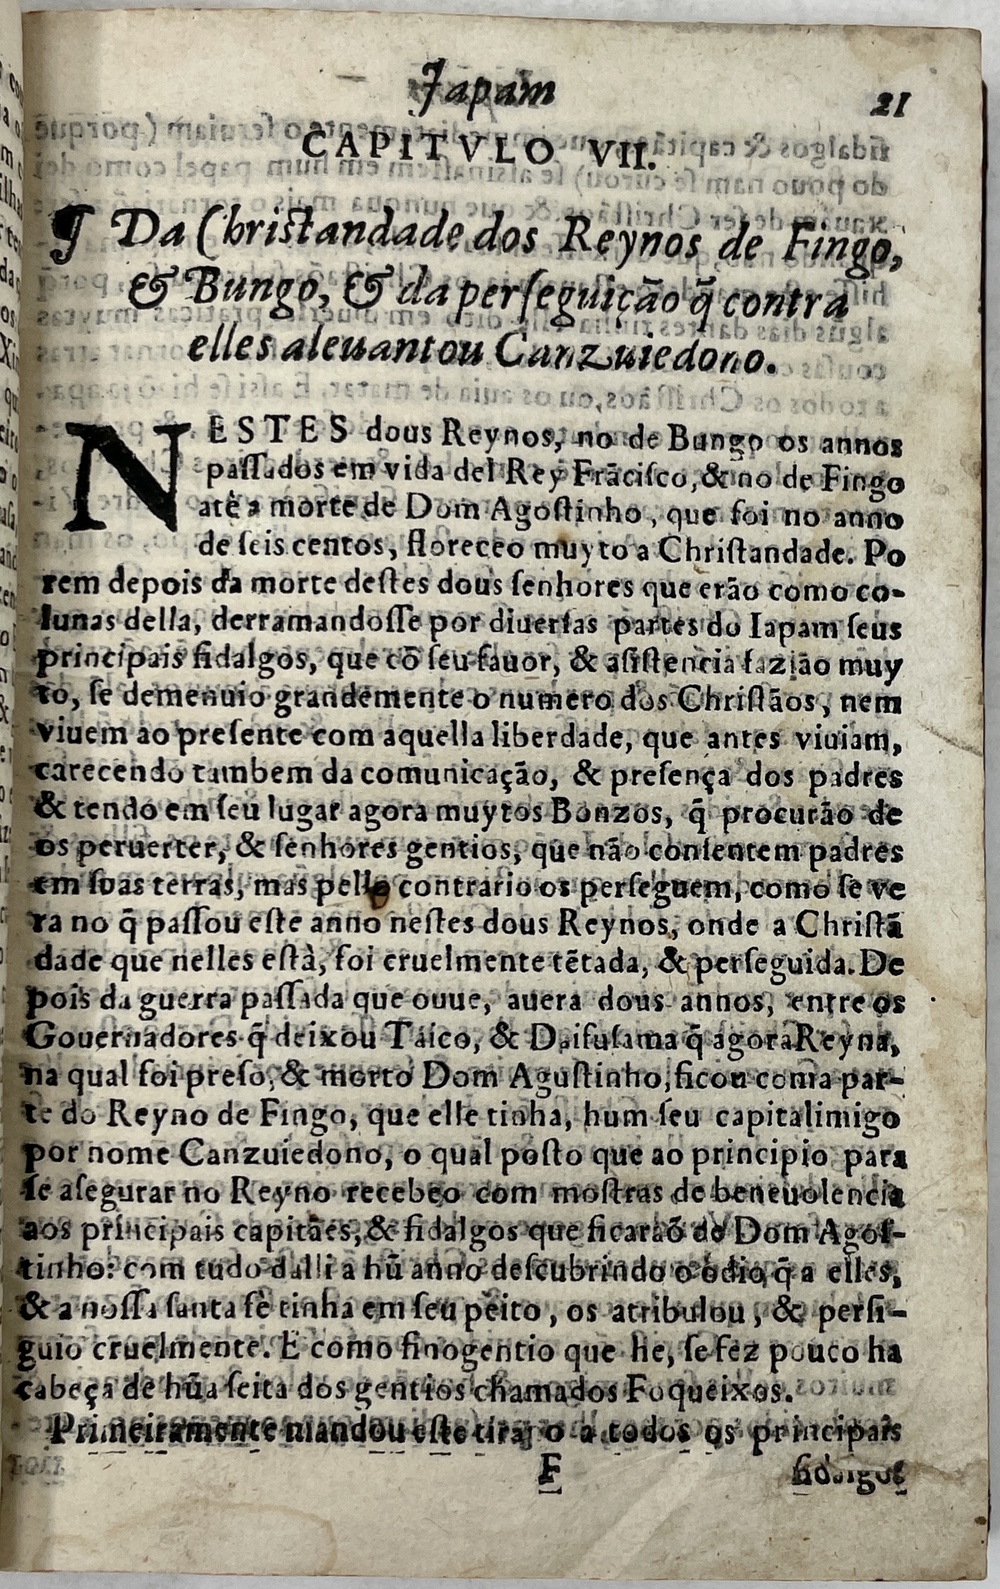 Japam
21
CAPITVLO VII.
¶ Da Christandade dos Reynos de Fingo,
& Bungo, & da perſeguição q̃ contra
elles aleuantou Canzuiedono.
NESTES dous Reynos, no de Bungo os annos
paſſados em vida del Rey Frãciſco, & no de Fingo
atè a morte de Dom Agoſtinho, que foi no anno
de ſeis centos, floreceo muyto a Chriſtandade. Po
rem depois da morte deſtes dous ſenhores que erão como co-
lunas della, derramandoſſe por diuerſas partes do Iapam ſeus
principais fidalgos, que cõ ſeu fauor, & aſiſtencia fazião muy
to, ſe demenuio grandemente o numero dos Chriſtãos, nem
viuem ao preſente com aquella liberdade, que antes viuiam,
carecendo tambem da comunicação, & preſença dos padres
& tendo em ſeu lugar agora muytos Bonzos, q̃ procurão de
os peruerter, & ſenhores gentios, que não conſentem padres
em ſuas terras, mas pello contrario os perſeguem, como ſe ve
ra no q̃ paſſou eſte anno neſtes dous Reynos, onde a Chriſtã
dade que nelles eſtà, foi cruelmente tẽtada, & perſeguida. De
pois da guerra paſſada que ouue, auera dous annos, entre os
Gouernadores q̃ deixou Taico, & Daifuſama q̃ agora Reyna,
na qual foi preſo, & morto Dom Aguſtinho, ficou com a par-
te do Reyno de Fingo, que elle tinha, hum ſeu capital imigo
por nome Canzuiedono, o qual poſto que ao principio para
ſe aſegurar no Reyno recebeo com moſtras de beneuolencia
aos principais capitães, & fidalgos que ficarão de Dom Agoſ-
tinho: com tudo dalli a hũ anno deſcubrindo o odio q̃ a elles,
& a noſſa ſanta fè tinha em ſeu peito, os atribulou, & perſi-
guio cruelmente. E como fino gentio que he, ſe fez pouco ha
cabeça de hũa ſeita dos gentios chamados Foqueixos.
Primeiramente mandou eſte tirar o a todos os principais
F
fidalgos